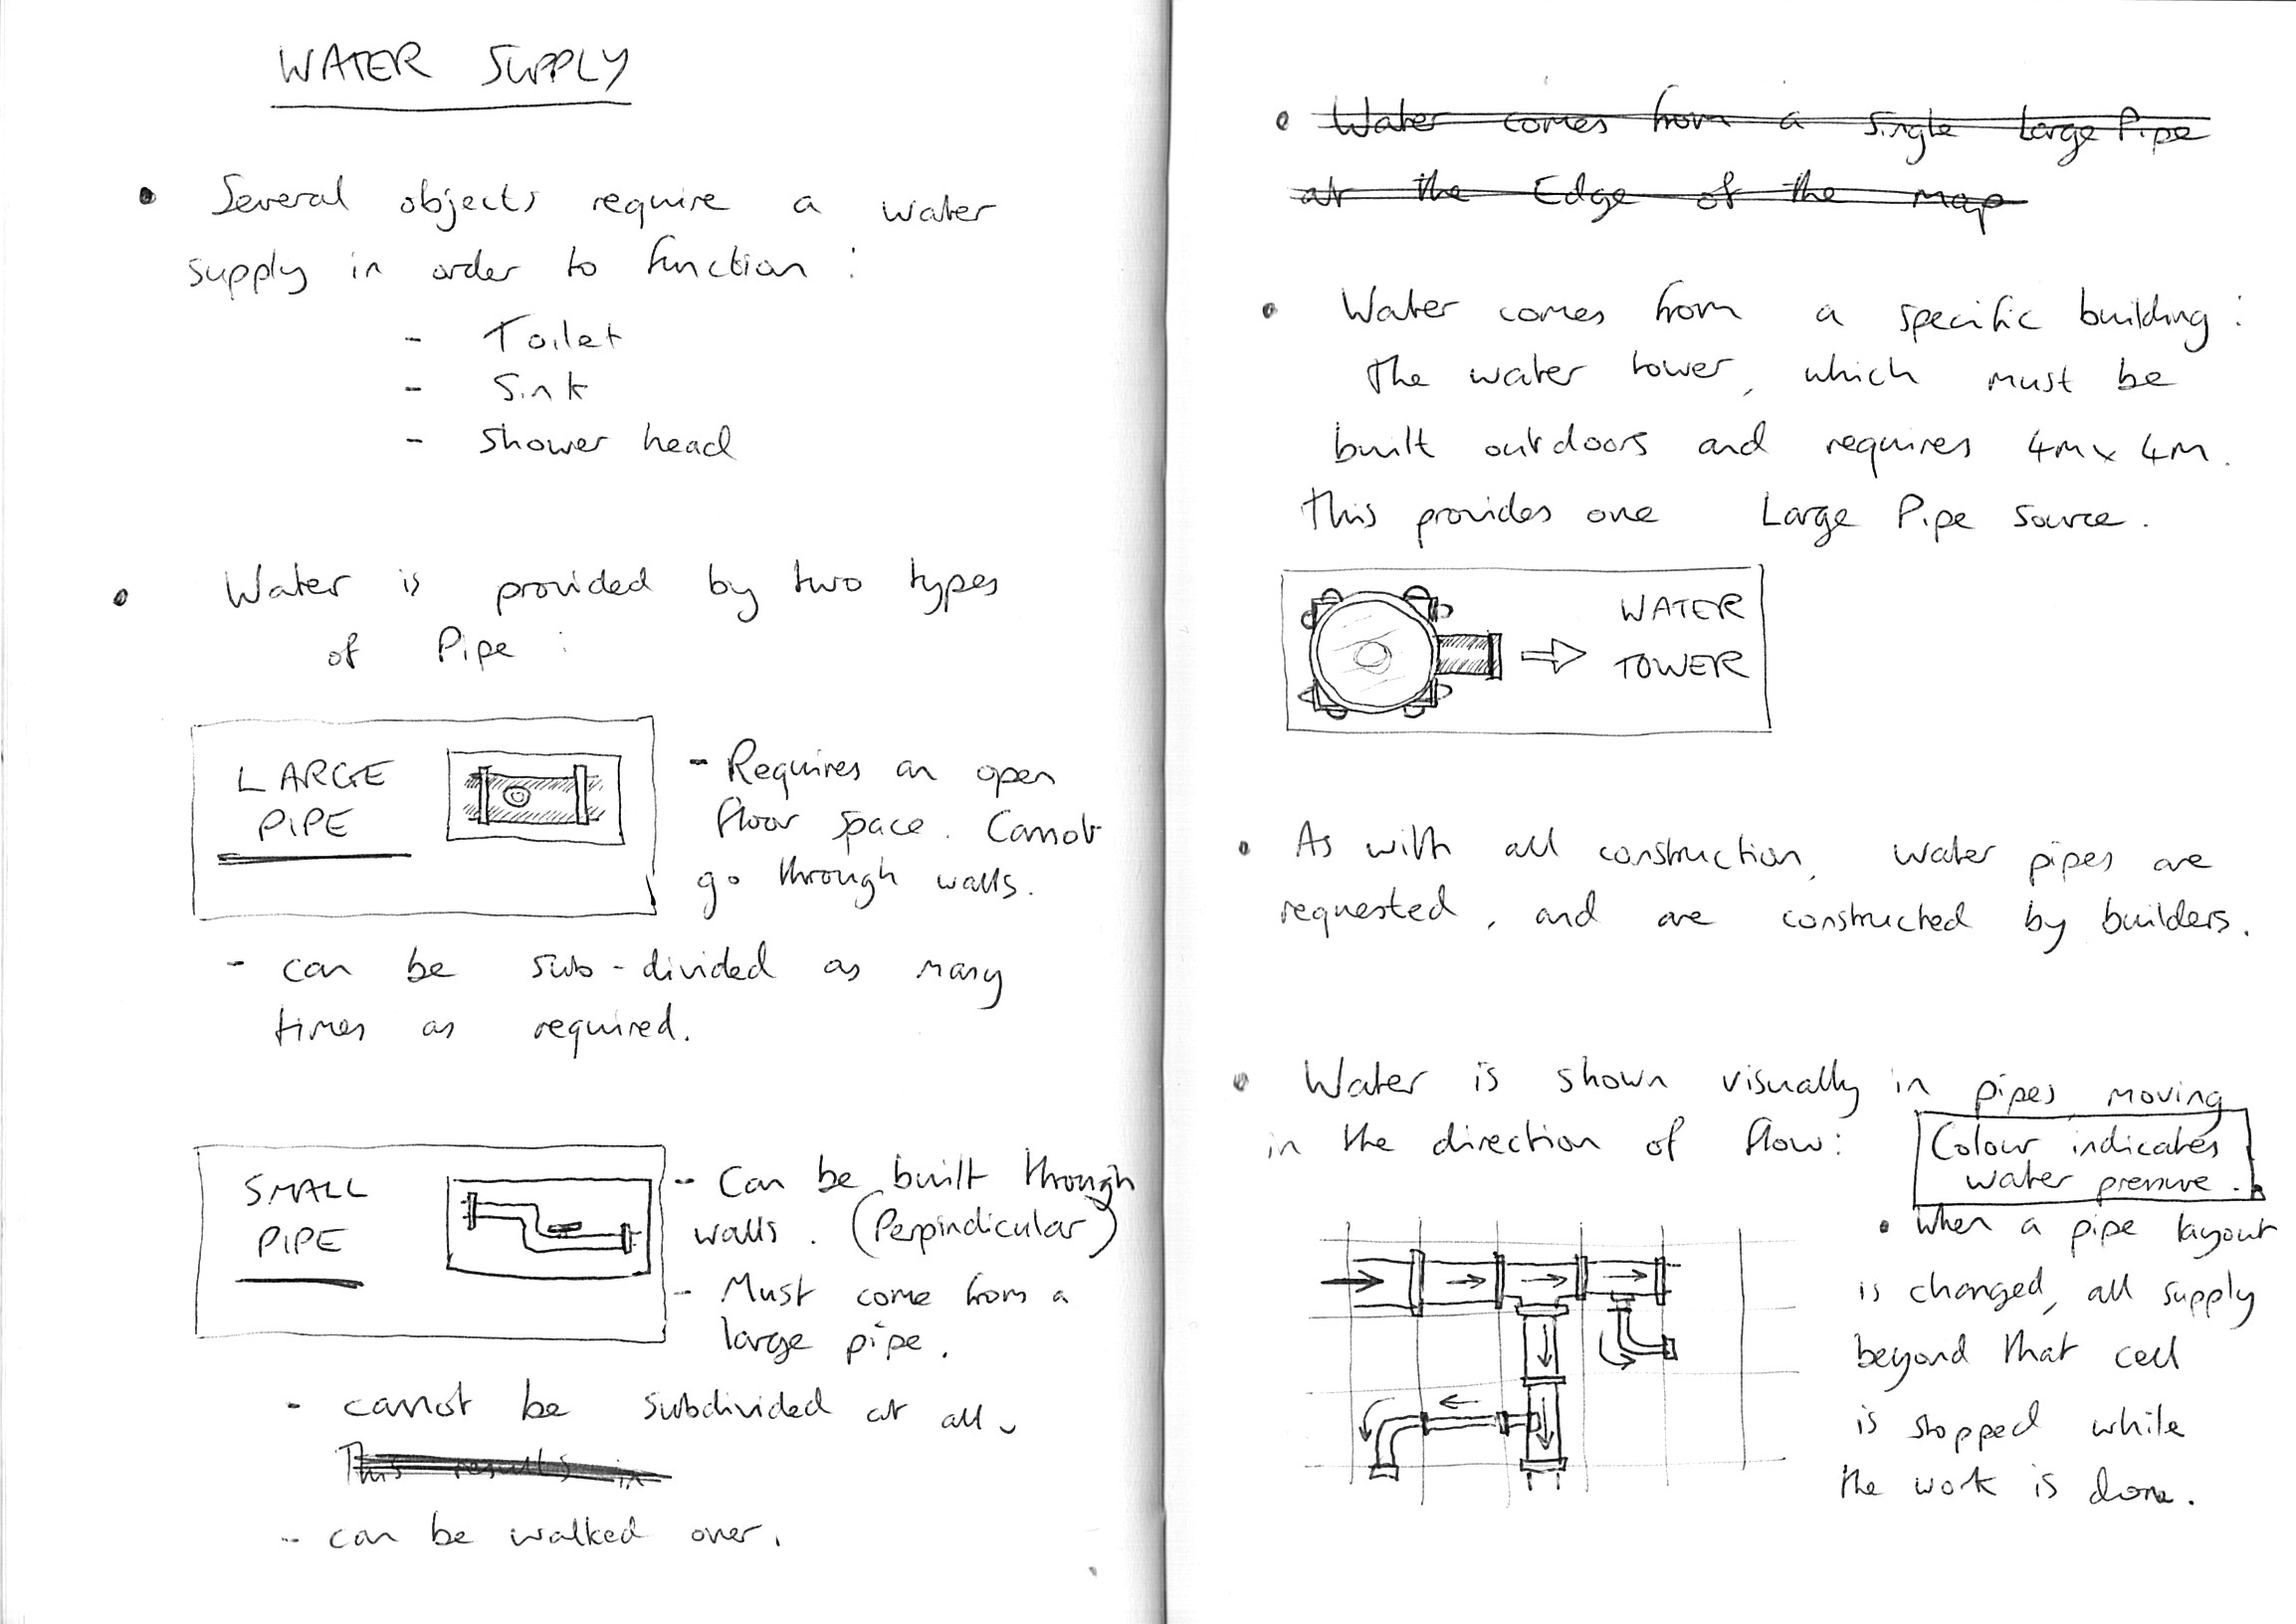 WATER SUPPLY
• Several objects require a water
supply in order to function :
- Toilet
- Sink
- Shower head
• Water is provided by two types
of Pipe :
LARGE
PIPE
- Requires an open
floor space. Cannot
go through walls.
- can be sub-divided as many
times as required.
SMALL
PIPE
- Can be built through
walls. (Perpindicular)
- Must come from a
large pipe.
- cannot be subdivided at all.
This results in
- can be walked over.
• Water comes from a single Large Pipe
at the Edge of the map
• Water comes from a specific building :
The water tower, which must be
built outdoors and requires 4m x 4m.
This provides one Large Pipe source.
WATER
TOWER
• As with all construction, water pipes are
requested, and are constructed by builders.
• Water is shown visually in pipes, moving
in the direction of flow:
Colour indicates
water pressure.
• When a pipe layout
is changed, all supply
beyond that cell
is stopped while
the work is done.